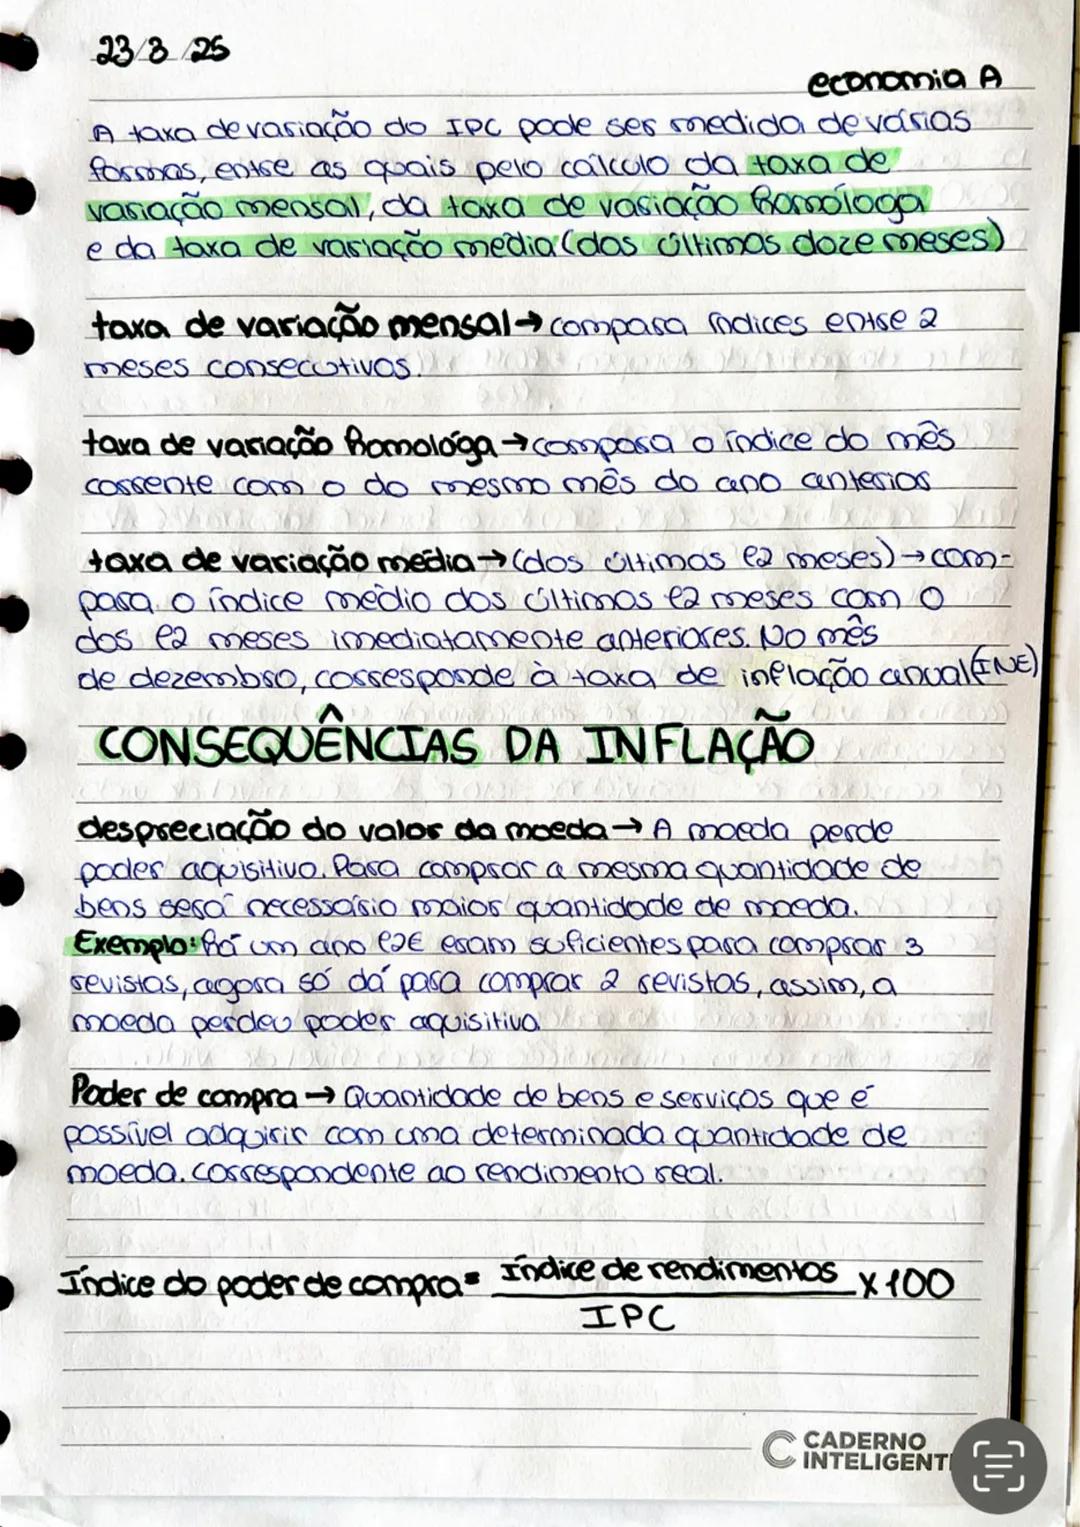 23/3/25
economia A
A taxa de variação do IPC pode ser medida de várias
formas, entre as quais pelo cálculo da taxa de
variação mensal, da taxa de variação homóloga
e da taxa de variação média (dos últimos doze meses)
taxa de variação mensal → compara índices entre 2
meses consecutivos.
taxa de variação homológa → compara o índice do mês
corrente com o do mesmo mês do ano anterior
taxa de variação média → (dos últimos 12 meses) → com-
para o índice médio dos últimos 12 meses com o
dos 12 meses imediatamente anteriores. No mês
de dezembro, corresponde à taxa de inflação anual (INE)
CONSEQUÊNCIAS DA INFLAÇÃO
despreciação do valor da moeda → A moeda perde
poder aquisitivo. Para comprar a mesma quantidade de
bens será necessário maior quantidade de moeda.
Exemplo: há um ano 12€ eram suficientes para comprar 3
revistas, agora só dá para comprar 2 revistas, assim, a
moeda perdeu poder aquisitivo
Poder de compra → Quantidade de bens e serviços que é
possível adquirir com uma determinada quantidade de
moeda. correspondente ao rendimento real.
Índice do poder de compra = Índice de rendimentos x 100
IPC
CADERNO
INTELIGENT